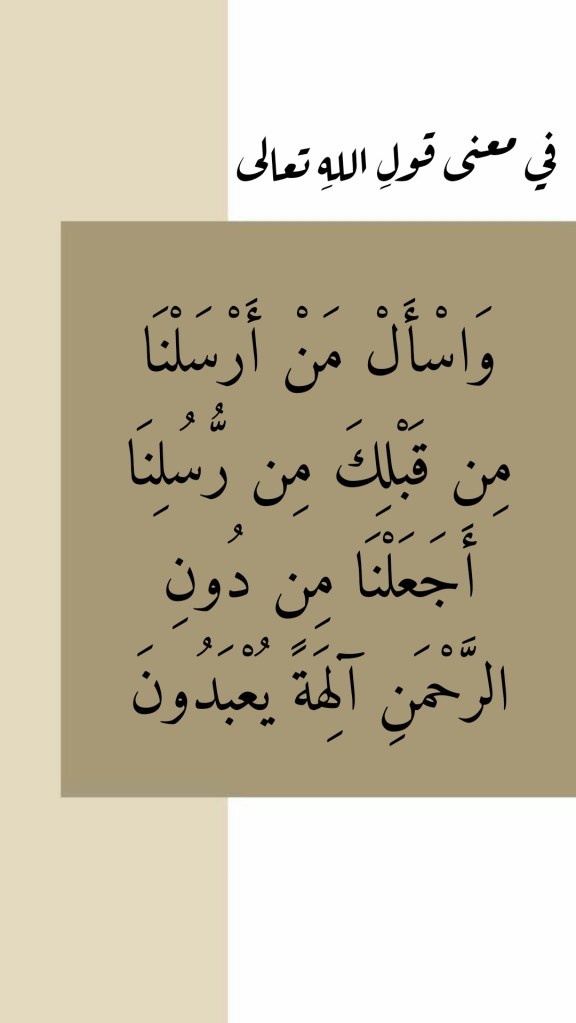 في معنى قولِ اللهِ تعالى
وَاسْأَلْ مَنْ أَرْسَلْنَا
مِن قَبْلِكَ مِن رُّسُلِنَا
أَجَعَلْنَا مِن دُونِ
الرَّحْمَنِ آلِهَةً يُعْبَدُونَ